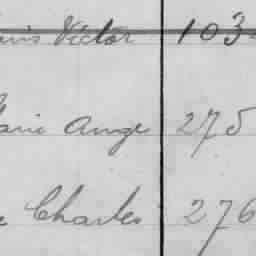 Victor 103
Marie Ange 275
Charles 276